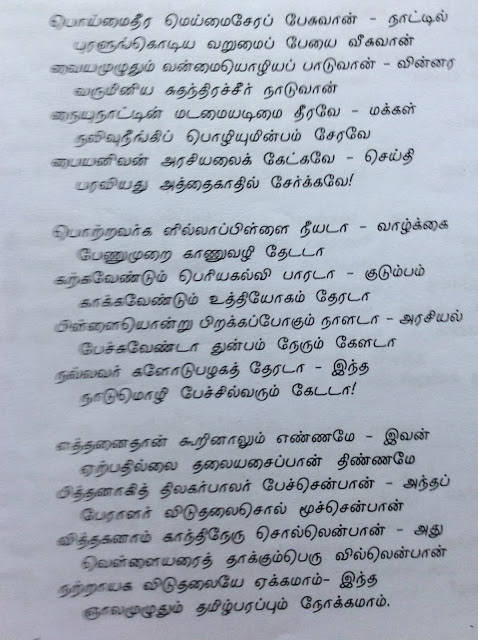 பொய்மைதீர மெய்மைசேரப் பேசுவான் - நாட்டில்
புரளுங்கொடிய வறுமைப் பேயை வீசுவான்
வையமுழுதும் வன்மையொழியப் பாடுவான் - வின்னர
வருமினிய சுதந்திரச்சீர் நாடுவான்
நையுநாட்டின் மடமையடிமை தீரவே - மக்கள்
நலிவுநீங்கிப் பொழியுமின்பம் சேரவே
பையனிவன் அரசியலைக் கேட்கவே - செய்தி
பரவியது அத்தைகாதில் சேர்க்கவே!

பெற்றவர்க ளில்லாப்பிள்ளை நீயடா - வாழ்க்கை
பேணுமுறை காணுவழி தேடடா
கற்கவேண்டும் பெரியகல்வி பாரடா - குடும்பம்
காக்கவேண்டும் உத்தியோகம் தேரடா
பிள்ளையொன்று பிறக்கப்போகும் நாளடா - அரசியல்
பேச்சுவேண்டா துன்பம் நேரும் கேளடா
நல்லவர் களோடுபழகத் தேரடா - இந்த
நாடுமொழி பேச்சில்வரும் கேடடா!

எத்தனைதான் கூறினாலும் எண்ணமே - இவன்
ஏற்பதில்லை தலையசைப்பான் திண்ணமே
பித்தனாகித் திலகர்பாலர் பேச்சென்பான் - அந்தப்
பேராளர் விடுதலைசொல் மூச்சென்பான்
வித்தகனாம் காந்திநேரு சொல்லென்பான் - அது
வெள்ளையரைத் தாக்கும்பெரு வில்லென்பான்
நற்றாயக விடுதலையே ஏக்கமாம்- இந்த
ஞாலமுழுதும் தமிழ்பரப்பும் நோக்கமாம்.